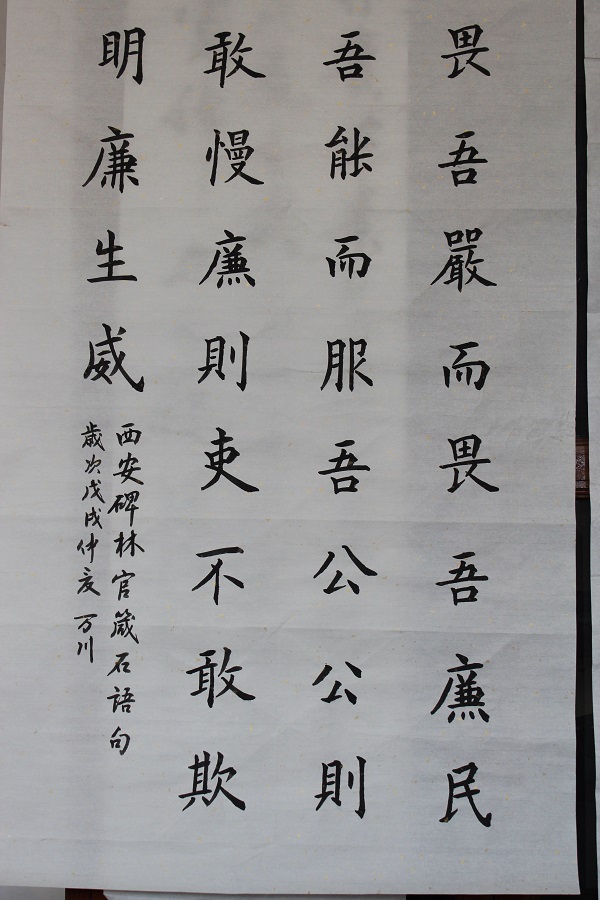 畏吾嚴而畏吾廉民
吾能而服吾公公則
敢慢廉則吏不敢欺
明廉生威
西安碑林官箴石語句
歲次戊戌仲夏 万川